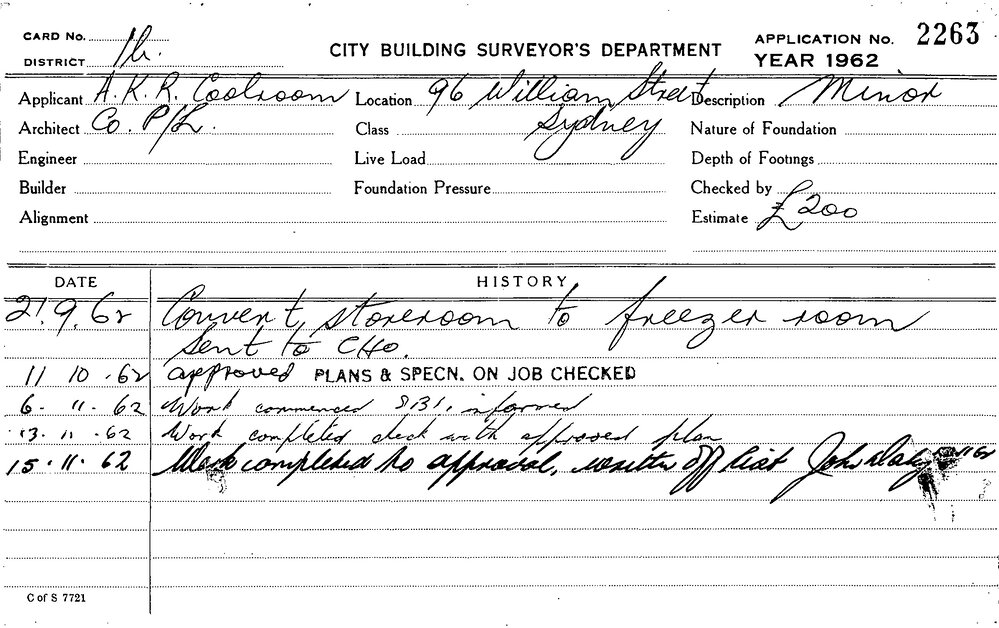 CARD No.
DISTRICT 1h.
CITY BUILDING SURVEYOR'S DEPARTMENT
APPLICATION No. 2263
YEAR 1962
Applicant A. K. R. Coolroom Location 96 William Street Description Minor
Architect Co. P/L. Class Sydney Nature of Foundation
Engineer Live Load Depth of Footings
Builder Foundation Pressure Checked by
Alignment Estimate £200
DATE HISTORY
21.9.62 Convert storeroom to freezer room
sent to CHO.
11 10 .62 approved PLANS & SPECN. ON JOB CHECKED
6. 11. 62 Work commenced informed
13. 11 .62 Work completed check with approved plan
15.11.62 Work completed to approval, written off list John Daly
C of S 7721